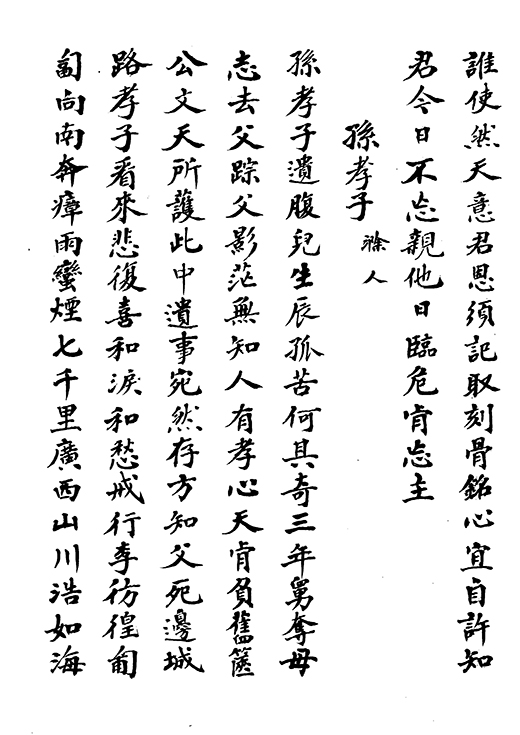 誰使然天意君恩須記取刻骨銘心宜自許知
君今日不忘親他日臨危肯忘主
孫孝子 滁人
孫孝子遺腹兒生辰孤苦何其奇三年舅奪母
志去父踪父影茫無知人有孝心天肯負舊篋
公文天所護此中遺事宛然存方知父死邊城
路孝子看來悲復喜和淚和愁戒行李彷徨匍
匐向南奔瘴雨蠻煙七千里廣西山川浩如海